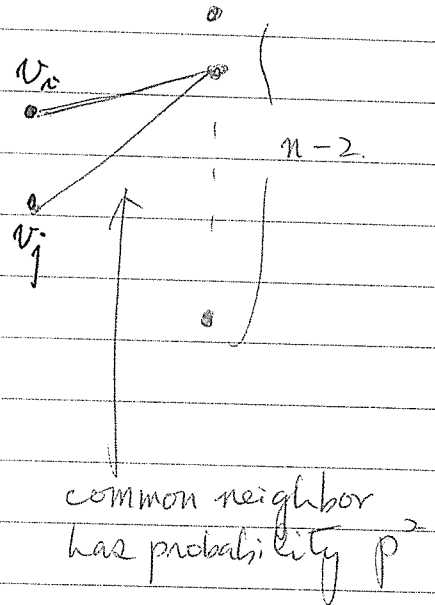 v_i
n-2.
v_j
common neighbor
has probability p²